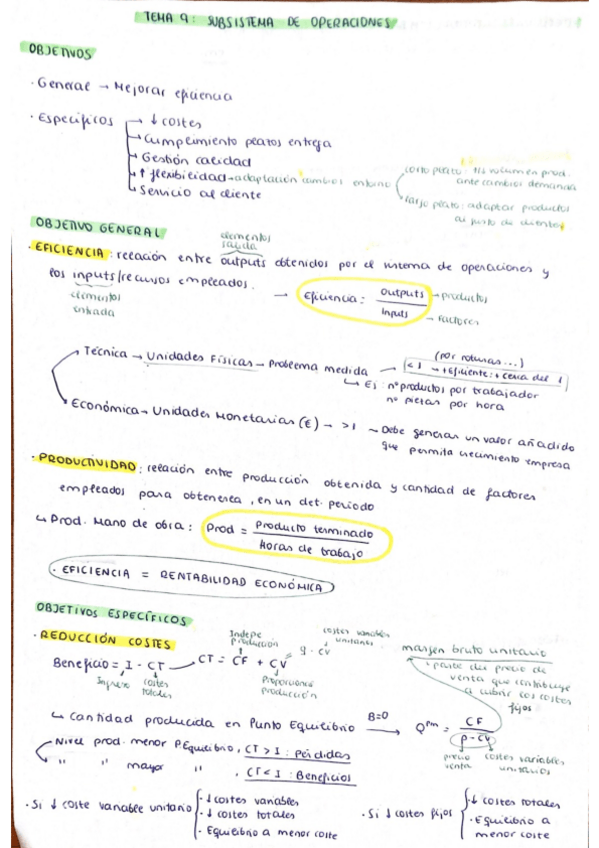 TEMA 9: SUBSISTEMA DE OPERACIONES
OBJETIVOS
· General → Mejorar eficiencia
· Específicos → ↓ costes
→ Cumplimiento plazos entrega
→ Gestión calidad
→ ↑ flexibilidad → adaptación cambios entorno
corto plazo: ↑↓ volumen prod.
ante cambios demanda
largo plazo: adaptar productos
al gusto de clientes
→ Servicio al cliente
OBJETIVO GENERAL
elementos
salida
· EFICIENCIA: relación entre outputs obtenidos por el sistema de operaciones y
los inputs/recursos empleados. → Eficiencia: Outputs → productos
Inputs → Factores
elementos
entrada
(por roturas...)
Técnica → Unidades Físicas → Problema medida → < 1 → + eficiente: + cerca del 1
↳ Ej: nº productos por trabajador
nº piezas por hora
Económica → Unidades Monetarias (€) → >1 → Debe generar un valor añadido
que permita crecimiento empresa
· PRODUCTIVIDAD: relación entre producción obtenida y cantidad de factores
empleados para obtenerla, en un det. periodo
↳ Prod. Mano de obra: Prod = Producto terminado
Horas de trabajo
· EFICIENCIA = RENTABILIDAD ECONÓMICA
OBJETIVOS ESPECÍFICOS
· REDUCCIÓN COSTES
Indepe
producción
costes variables
unitarios
Beneficio = I - CT → CT = CF + CV = q · cv
Ingreso costes
totales
Proporciones
producción
margen bruto unitario
· parte del precio de
venta que contribuye
a cubrir los costes
fijos
↳ Cantidad producida en Punto Equilibrio B=0 → Q = CF
P - CV
precio
venta
costes variables
unitarios
Nivel prod. menor P. Equilibrio, CT > I: Pérdidas
" " mayor " , CT < I: Beneficios
· Si ↓ coste variable unitario
· ↓ costes variables
· ↓ costes totales
· Equilibrio a menor coste
· Si ↓ costes fijos
· ↓ costes totales
· Equilibrio a
menor coste